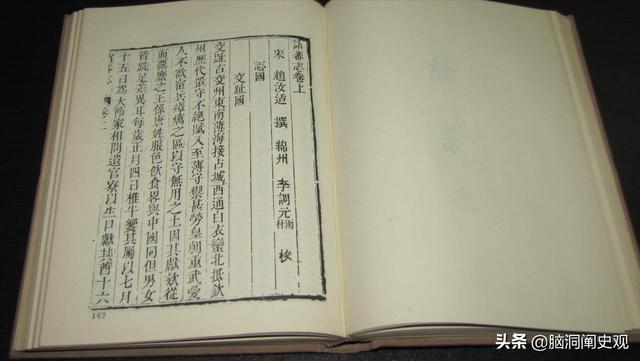 諸蕃志卷上
宋 趙汝适 撰 綿州 李調元 雨村 校
志國
交趾國
交趾古交州東南薄海接占城西通白衣蠻北抵欽
州歷代置守不絕賦入至薄守禦甚勞皇朝重武愛
人不欲宿兵瘴癘之區以守無用之土因其獻欵從
而羈縻之王係唐姓服色飲食畧與中國同但男女
皆跣足差異耳每歲正月四日椎牛饗其屬以七月
十五日為大節家相問遺官寮以生日獻其酋十六
167
头条 @脑洞阐史观